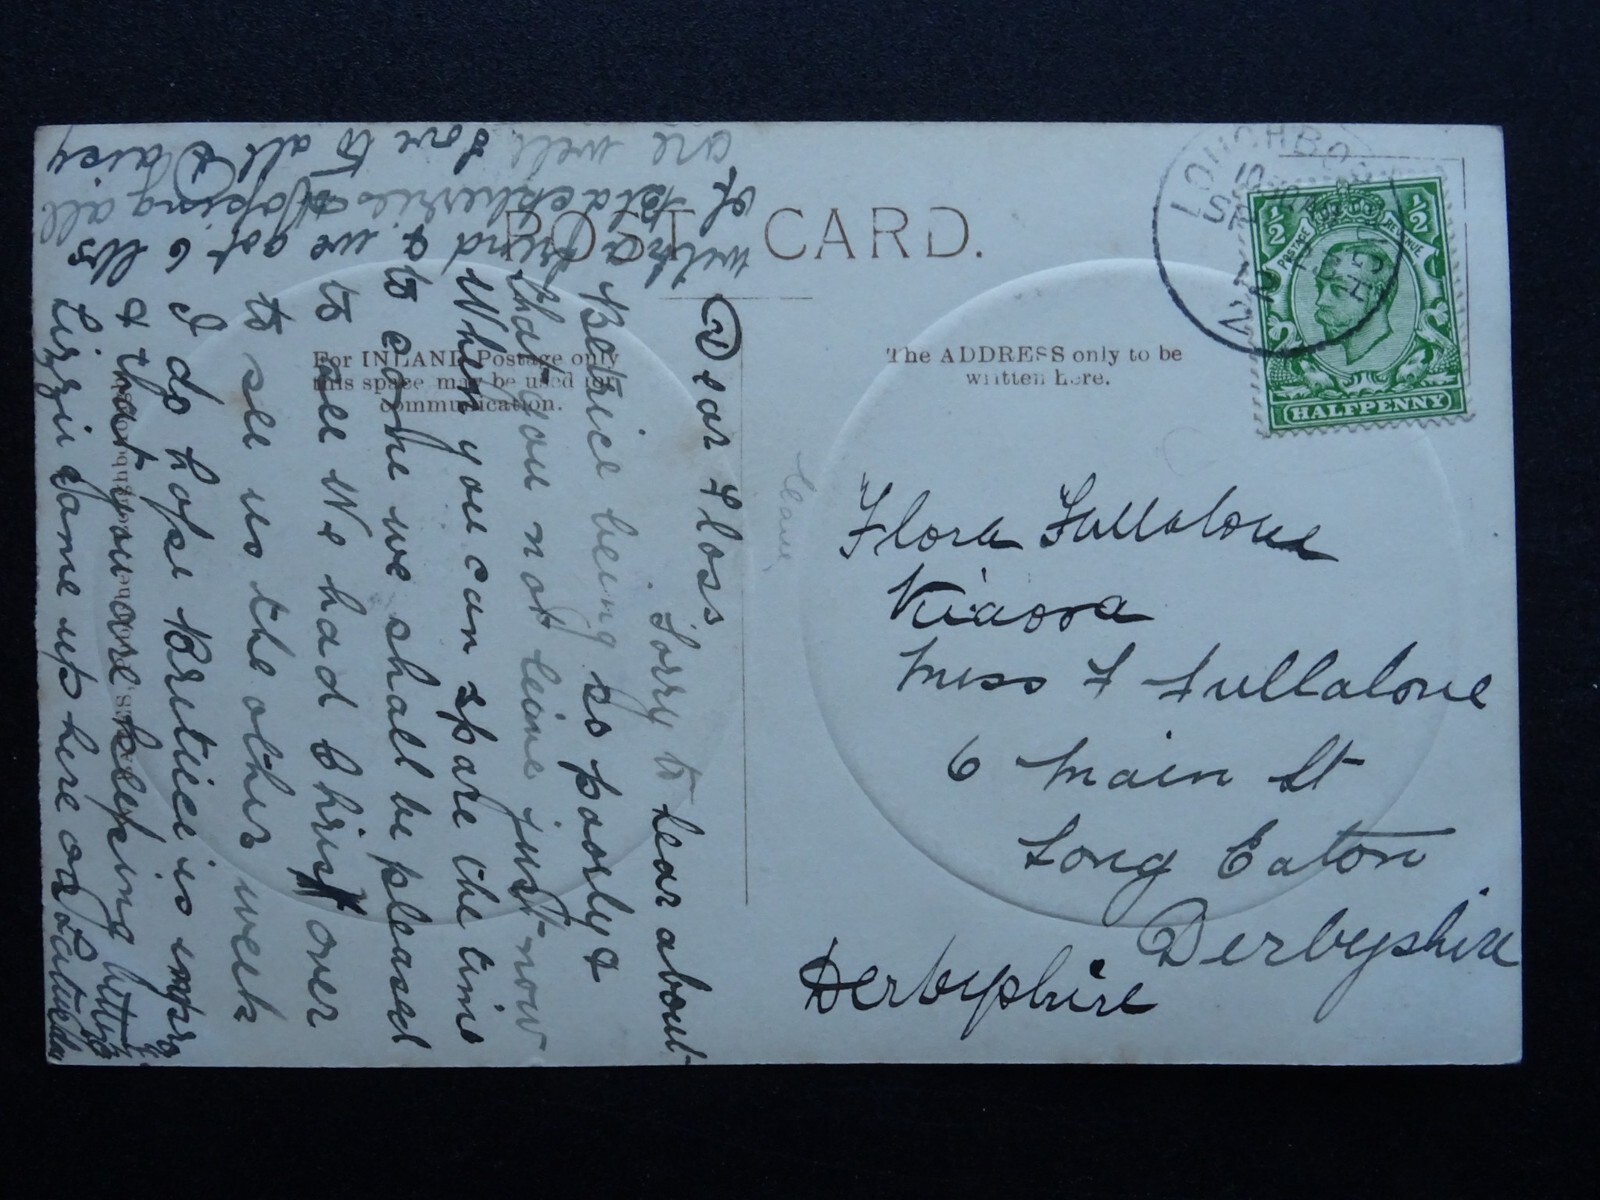 POST CARD.
For INLAND Postage only
this space may be used for
communication.
The ADDRESS only to be
written here.
LOUGHBORO
½ ½
POSTAGE REVENUE
HALFPENNY
Flora Fullalove
Kiaora
Miss F Fullalove
6 Main St
Long Eaton
Derbyshire
Derbyshire
leave
Dear Floss
Sorry to hear about
Betrice being so poorly &
that you not leive just now
When you can spare the time
to come we shall be pleased
to see We had Chris over
to see us the other week
I do hope Bretice is impro
& that you are keeping better
Lizzie came up here on Saturday
with a frend & we got 6 lbs
of Blackberries Hoping all
are well Love to all Daisy